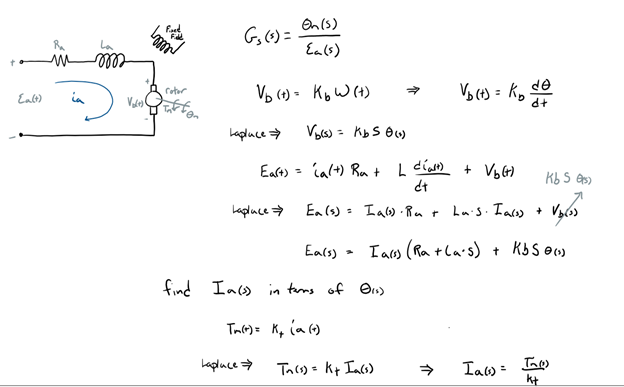 Ra La
Fixed Field
+
Ea(t) ia Vb(t) rotor
+
Tm θm
-
-
Gs(s) = θm(s) / Ea(s)
Vb(t) = Kb ω(t) ⇒ Vb(t) = Kb dθ/dt
Laplace ⇒ Vb(s) = Kb S θ(s)
Ea(t) = ia(t) Ra + L dia(t)/dt + Vb(t)
Kb S θ(s)
Laplace ⇒ Ea(s) = Ia(s)·Ra + La·s·Ia(s) + Vb(s)
Ea(s) = Ia(s) (Ra + La·s) + Kb S θ(s)
find Ia(s) in terms of θ(s)
Tm(t) = Kt ia(t)
Laplace ⇒ Tm(s) = Kt Ia(s) ⇒ Ia(s) = Tm(s) / Kt